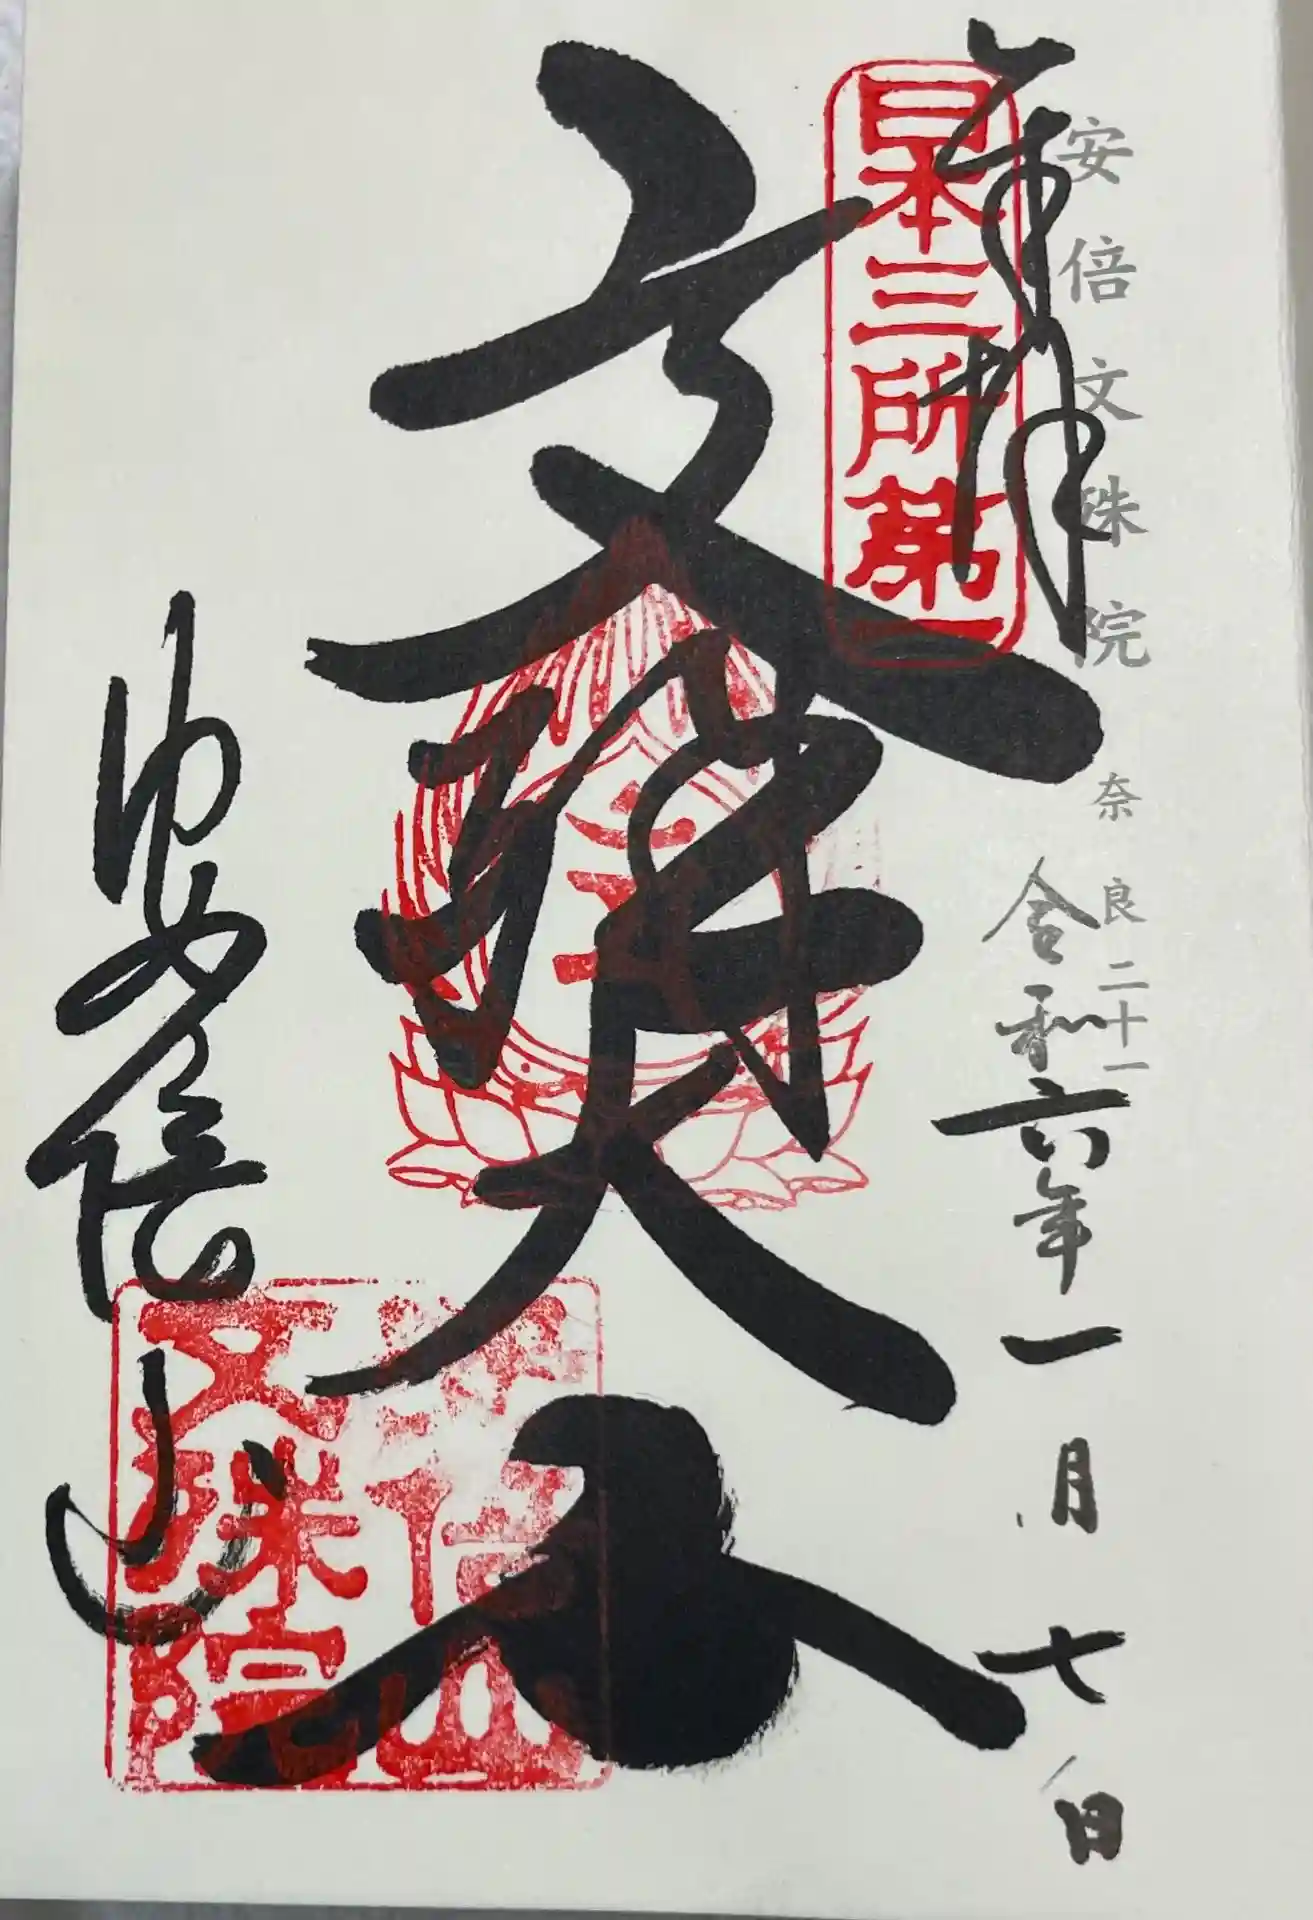 安倍文殊院 奈良二十一
奉拝
令和六年一月七日
日本三所第一
文殊大士
安倍山
安倍山
文殊院